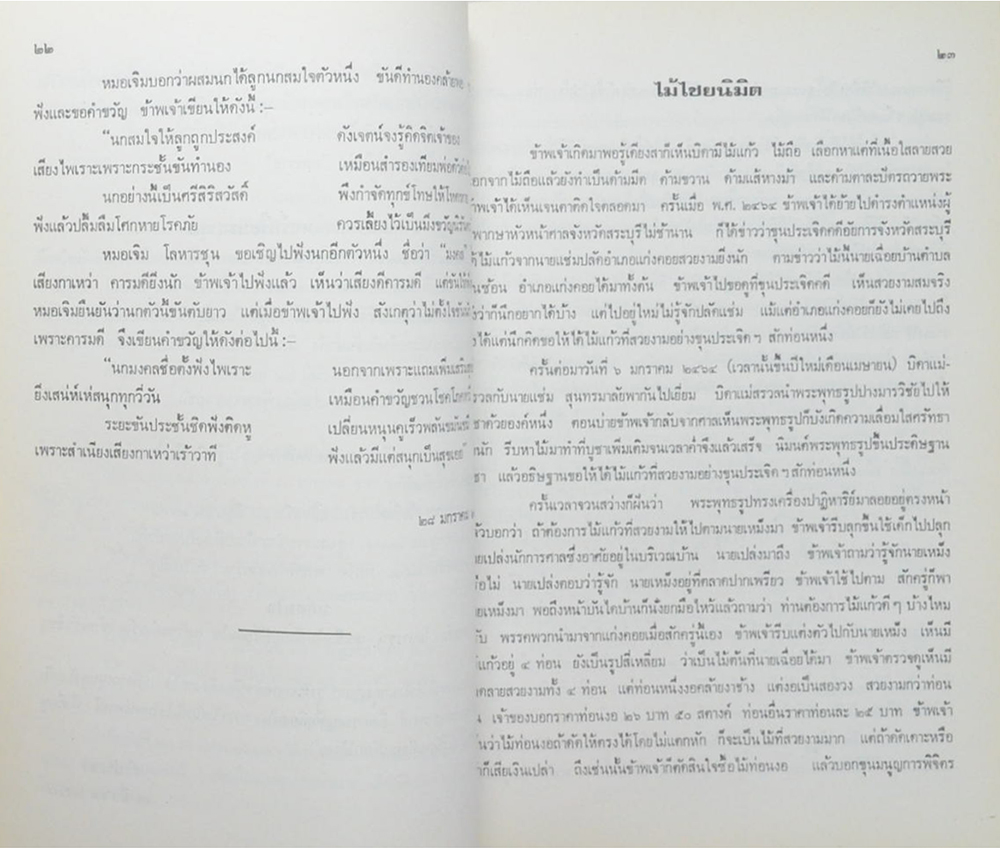 ๒๒
หมอเจิมบอกว่าผสมนกได้ลูกนกสมใจตัวหนึ่ง ขันดีทำนองคล้าย
ฟังและขอคำขวัญ ข้าพเจ้าเขียนให้ดังนี้ :–
“นกสมใจให้ลูกถูกประสงค์ ดังเจตน์จงรู้คิดจิตเจ้าของ
เสียงไพเราะเพราะกระชั้นขันทำนอง เหมือนสำรองเทียมพ่อ
นกอย่างนี้เป็นศรีสิริสวัสดิ์ พึงกำจัดทุกข์โทษให้
ฟังแล้วปลื้มลืมโศกหายโรคภัย ควรเลี้ยงไว้เป็นมิ่งขวัญ
หมอเจิม โลหารชุน ขอเชิญไปฟังนกอีกตัวหนึ่ง ชื่อว่า “มงคล
เสียงกาเหว่า คารมดียิ่งนัก ข้าพเจ้าไปฟังแล้ว เห็นว่าเสียงดีคารมดี แต่ขัน
หมอเจิมยืนยันว่านกตัวนี้ขันดับยาว แต่เมื่อข้าพเจ้าไปฟัง สังเกตุว่าไม่ตั้งใจ
เพราะคารมดี จึงเขียนคำขวัญให้ดังต่อไปนี้ :–
“นกมงคลชื่อตั้งฟังไพเราะ นอกจากเพราะแถมเพิ่ม
ยิ่งเสน่ห์เห่สนุกทุกวี่วัน เหมือนคำขวัญชวนโชค
ระยะขันประชั้นชิดฟังติดหู เปลี่ยนหนุนคูเร็วพลัน
เพราะสำเนียงเสียงกาเหว่าเร้าวาที ฟังแล้วมีแต่สนุกเป็นสุข
๒๘ มกราคม
๒๓
ไม้ไชยนิมิต
ข้าพเจ้าเกิดมาพอรู้เดียงสาก็เห็นบิดามีไม้แก้ว ไม้ถือ เลือกหาแต่ที่เนื้อใสลายสวย
อกจากไม้ถือแล้วยังทำเป็นด้ามมีด ด้ามขวาน ด้ามแส้หางม้า และด้ามตาละปัตรถวายพระ
าพเจ้าได้เห็นเจนตาติดใจตลอดมา ครั้นเมื่อ พ.ศ. ๒๔๖๔ ข้าพเจ้าได้ย้ายไปดำรงตำแหน่งผู้
พากษาหัวหน้าศาลจังหวัดสระบุรีไม่ช้านาน ก็ได้ข่าวว่าขุนประเจิดคดีอัยการจังหวัดสระบุรี
ด้ไม้แก้วจากนายแช่มปลัดอำเภอแก่งคอยสวยงามยิ่งนัก ตามข่าวว่าไม้นี้นายเฉื่อยบ้านตำบล
นซ้อน อำเภอแก่งคอยได้มาทั้งต้น ข้าพเจ้าไปขอดูที่ขุนประเจิดคดี เห็นสวยงามสมจริง
งว่าก็นึกอยากได้บ้าง แต่ไปอยู่ใหม่ไม่รู้จักปลัดแช่ม แม้แต่อำเภอแก่งคอยก็ยังไม่เคยไปถึง
งได้แต่นึกคิดขอให้ได้ไม้แก้วที่สวยงามอย่างขุนประเจิด ฯ สักท่อนหนึ่ง
ครั้นต่อมาวันที่ ๖ มกราคม ๒๔๖๔ (เวลานั้นขึ้นปีใหม่เดือนเมษายน) บิดาแม่-
รวลกับนายแช่ม สุนทรมาลัยพากันไปเยี่ยม บิดาแม่สรวลนำพระพุทธรูปปางมารวิชัยไปให้
ชาด้วยองค์หนึ่ง ตอนบ่ายข้าพเจ้ากลับจากศาลเห็นพระพุทธรูปก็บังเกิดความเลื่อมใสศรัทธา
นัก รีบหาไม้มาทำที่บูชาเพิ่มเติมจนเวลาค่ำจึงแล้วเสร็จ นิมนต์พระพุทธรูปขึ้นประดิษฐาน
ชา แล้วอธิษฐานขอให้ได้ไม้แก้วที่สวยงามอย่างขุนประเจิด ฯ สักท่อนหนึ่ง
ครั้นเวลาจวนสว่างก็ฝันว่า พระพุทธรูปทรงเครื่องปาฏิหาริย์มาลอยอยู่ตรงหน้า
ล้วบอกว่า ถ้าต้องการไม้แก้วที่สวยงามให้ไปตามนายเหม็งมา ข้าพเจ้ารีบลุกขึ้นใช้เด็กไปปลุก
ายเปล่งนักการศาลซึ่งอาศัยอยู่ในบริเวณบ้าน นายเปล่งมาถึง ข้าพเจ้าถามว่ารู้จักนายเหม็ง
รือไม่ นายเปล่งตอบว่ารู้จัก นายเหม็งอยู่ที่ตลาดปากเพรียว ข้าพเจ้าใช้ไปตาม สักครู่ก็พา
ายเหม็งมา พอถึงหน้าบันไดบ้านก็นั่งยกมือไหว้แล้วถามว่า ท่านต้องการไม้แก้วดี ๆ บ้างไหม
รับ พรรคพวกนำมาจากแก่งคอยเมื่อสักครู่นี้เอง ข้าพเจ้ารีบแต่งตัวไปกับนายเหม็ง เห็นมี
ม้แก้วอยู่ ๔ ท่อน ยังเป็นรูปสี่เหลี่ยม ว่าเป็นไม้ต้นที่นายเฉื่อยได้มา ข้าพเจ้าตรวจดูเห็นมี
วดลายสวยงามทั้ง ๔ ท่อน แต่ท่อนหนึ่งงอคล้ายงาช้าง แต่งอเป็นสองวง สวยงามกว่าท่อน
น เจ้าของบอกราคาท่อนงอ ๒๖ บาท ๕๐ สตางค์ ท่อนอื่นราคาท่อนละ ๒๕ บาท ข้าพเจ้า
ห็นว่าไม้ท่อนงอถ้าดัดให้ตรงได้โดยไม่แตกหัก ก็จะเป็นไม้ที่สวยงามมาก แต่ถ้าดัดเดาะหรือ
ก็เสียเงินเปล่า ถึงเช่นนั้นข้าพเจ้าก็ตัดสินใจซื้อไม้ท่อนงอ แล้วบอกขุนมนูญการพิจิตร